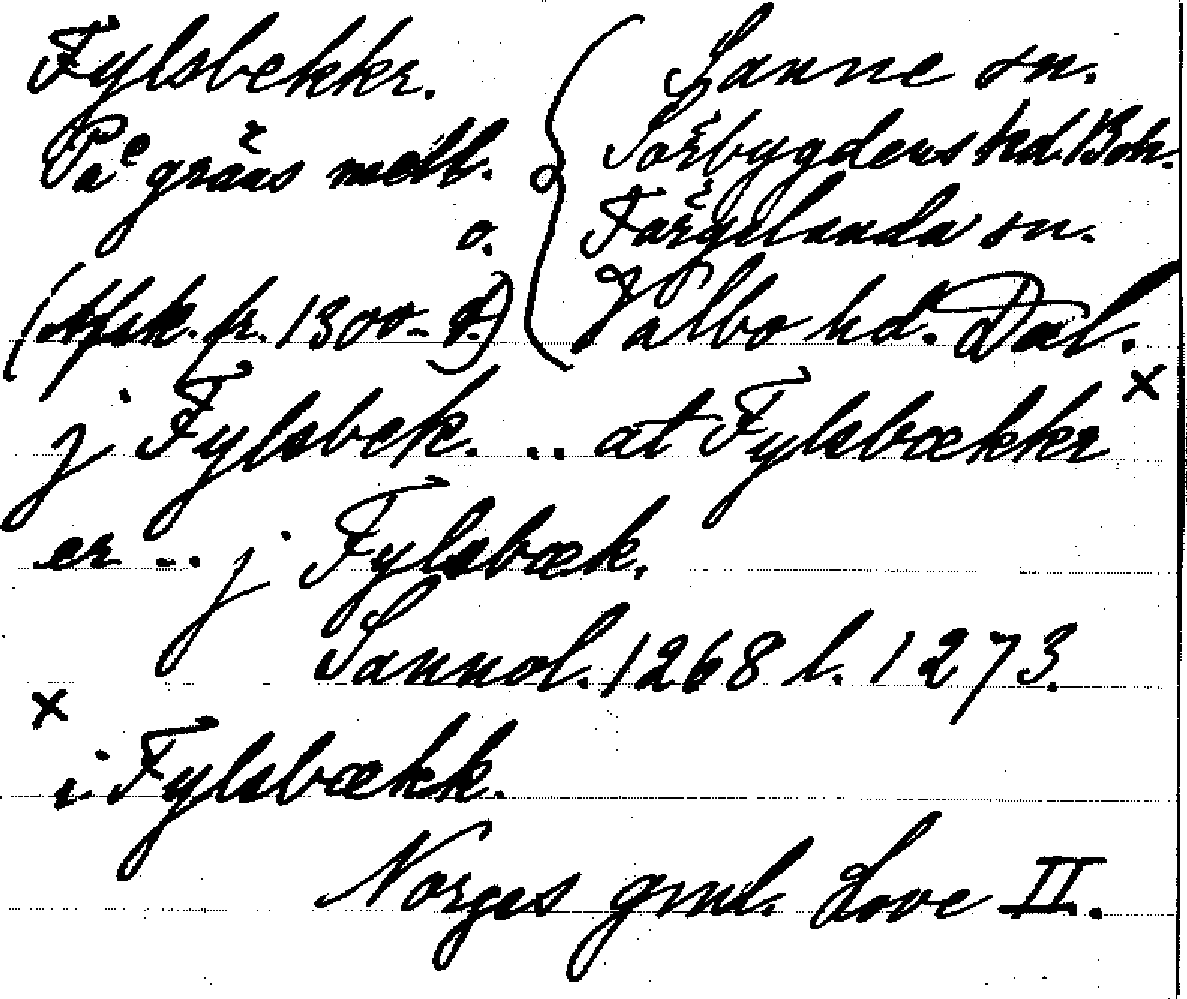 Fylsbekkr. Sanne sn.
På gräns mell. Sörbygdens hd. Boh.
o. Färgelanda sn.
(Afsk. fr. 1300-t.) Valbo hd. Dal.
j Fylsbek. .. at Fylsbækkr x
er .. j Fylsbæk.
Sannol. 1268 l. 1273.
x
i Fylsbækk.
Norges gml. Love II.